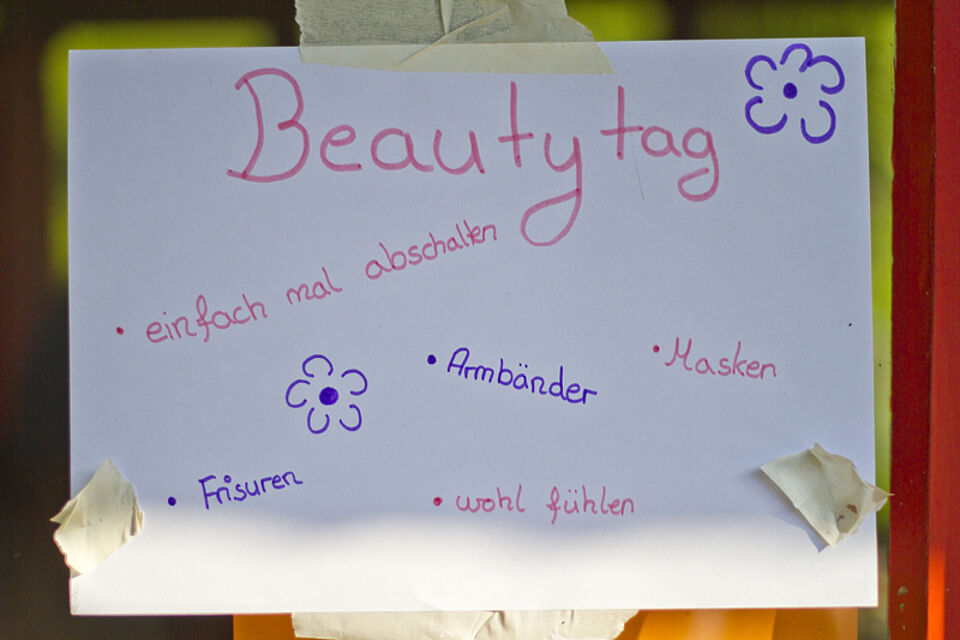 Beautytag
• einfach mal abschalten
• Armbänder
• Masken
• Frisuren
• wohl fühlen